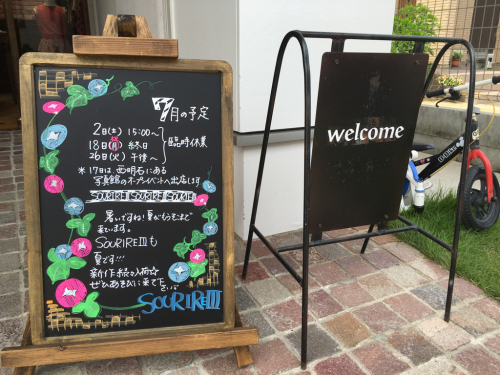 7月の予定
2日(土) 15:00〜
18日(月) 終日
26日(火) 午後〜
臨時休業
※ 17日は、西明石にある
写真館のオープンイベントへ出店します
SOURIREⅢ SOURIREⅢ SOURIRE
暑いですね!夏がもうそこまで
来ています。
SOURIREⅢも
夏です!!!
新作続々入荷☆
ぜひあそびに来て下さいね
SOURIREⅢ
welcome